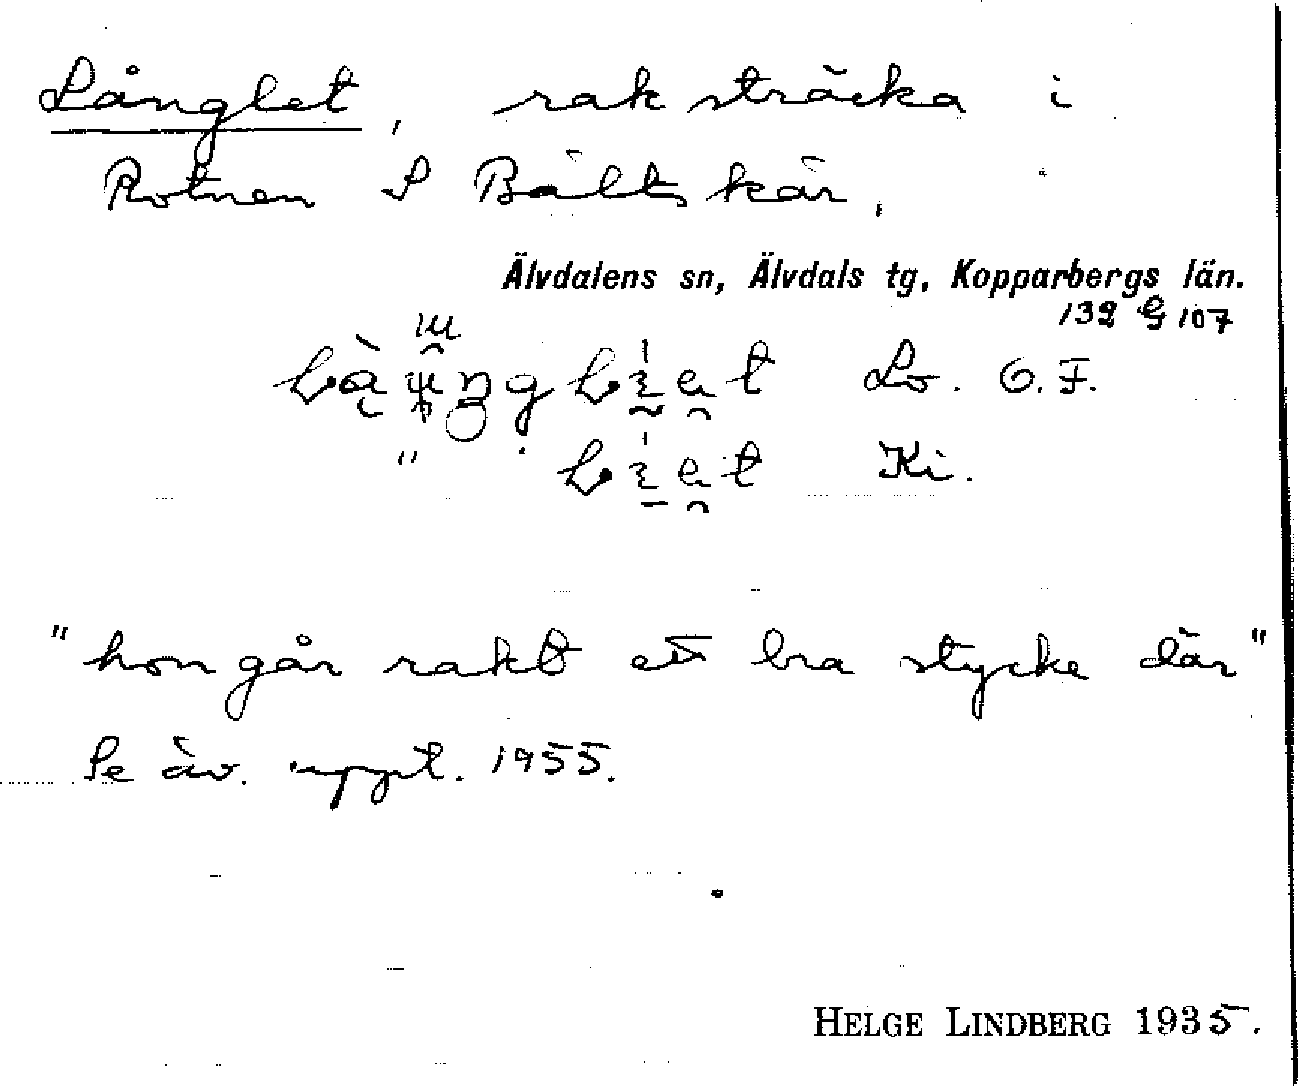 Långlet, rak sträcka i
Rotnen S Bälts kär,
Älvdalens sn, Älvdals tg, Kopparbergs län.
132 G 107
Lo. O.F.
" Ki.
"hon går rakt ett bra stycke där"
Se äv. uppt. 1955.
HELGE LINDBERG 1935.